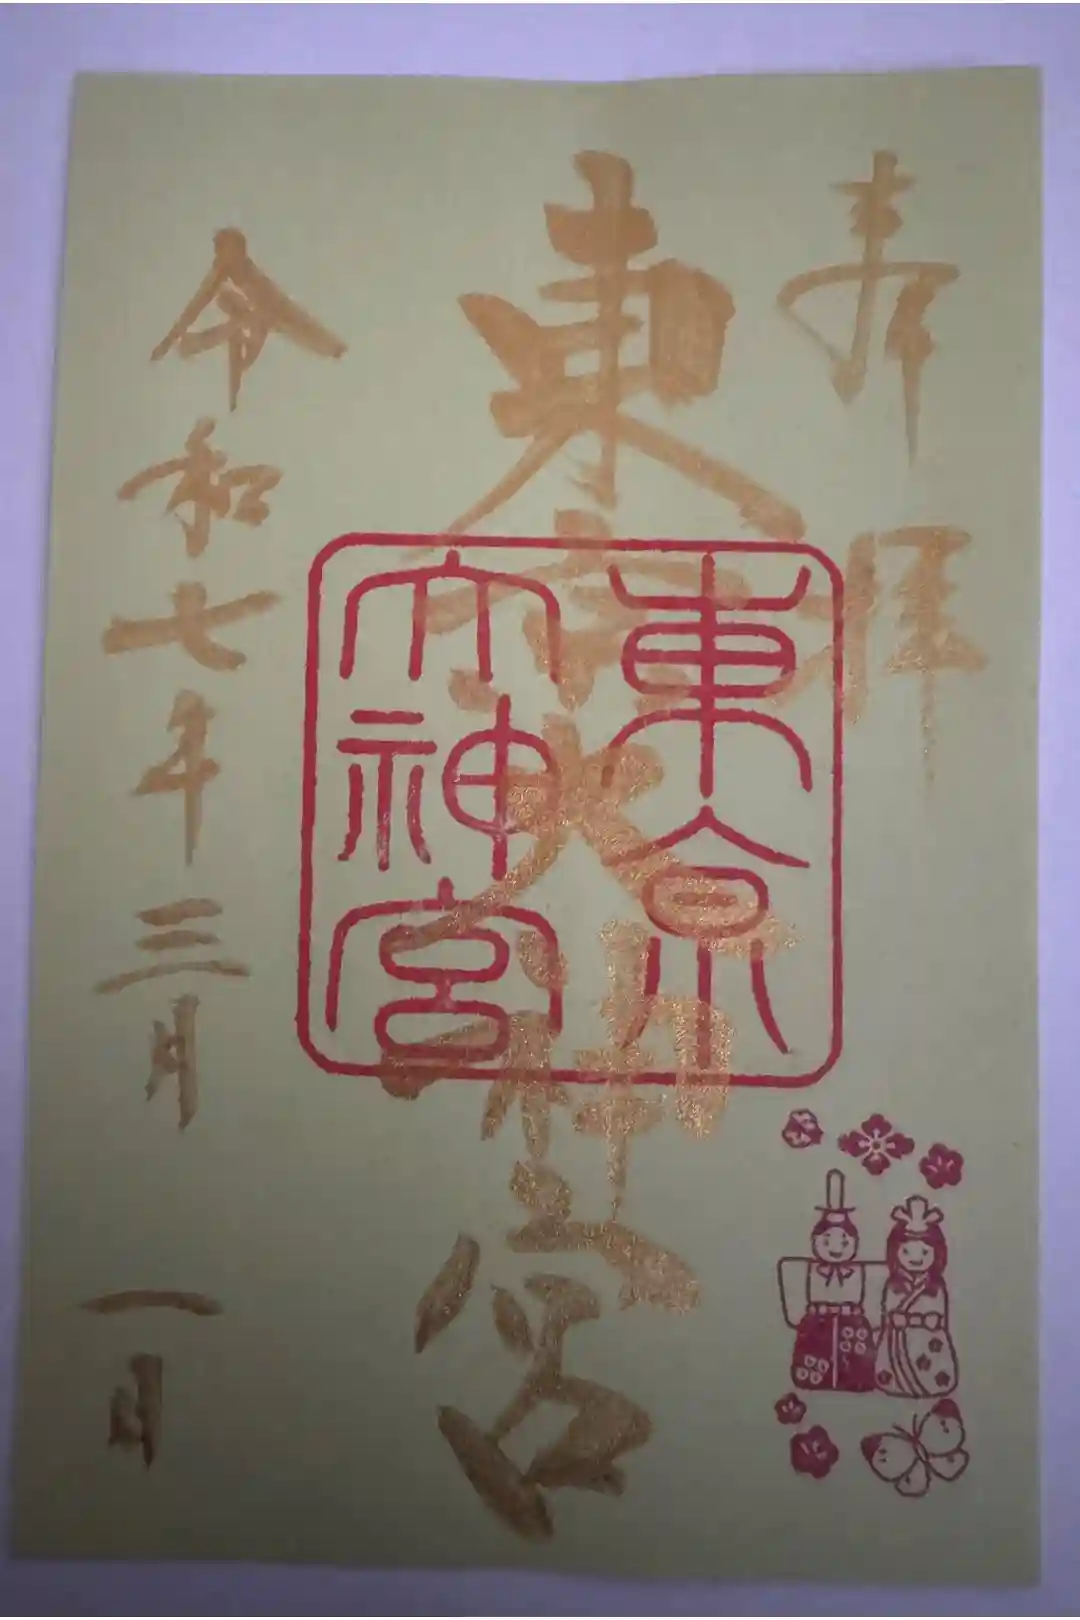 奉拝
東京大神宮
東京
大神宮
令和七年三月一日